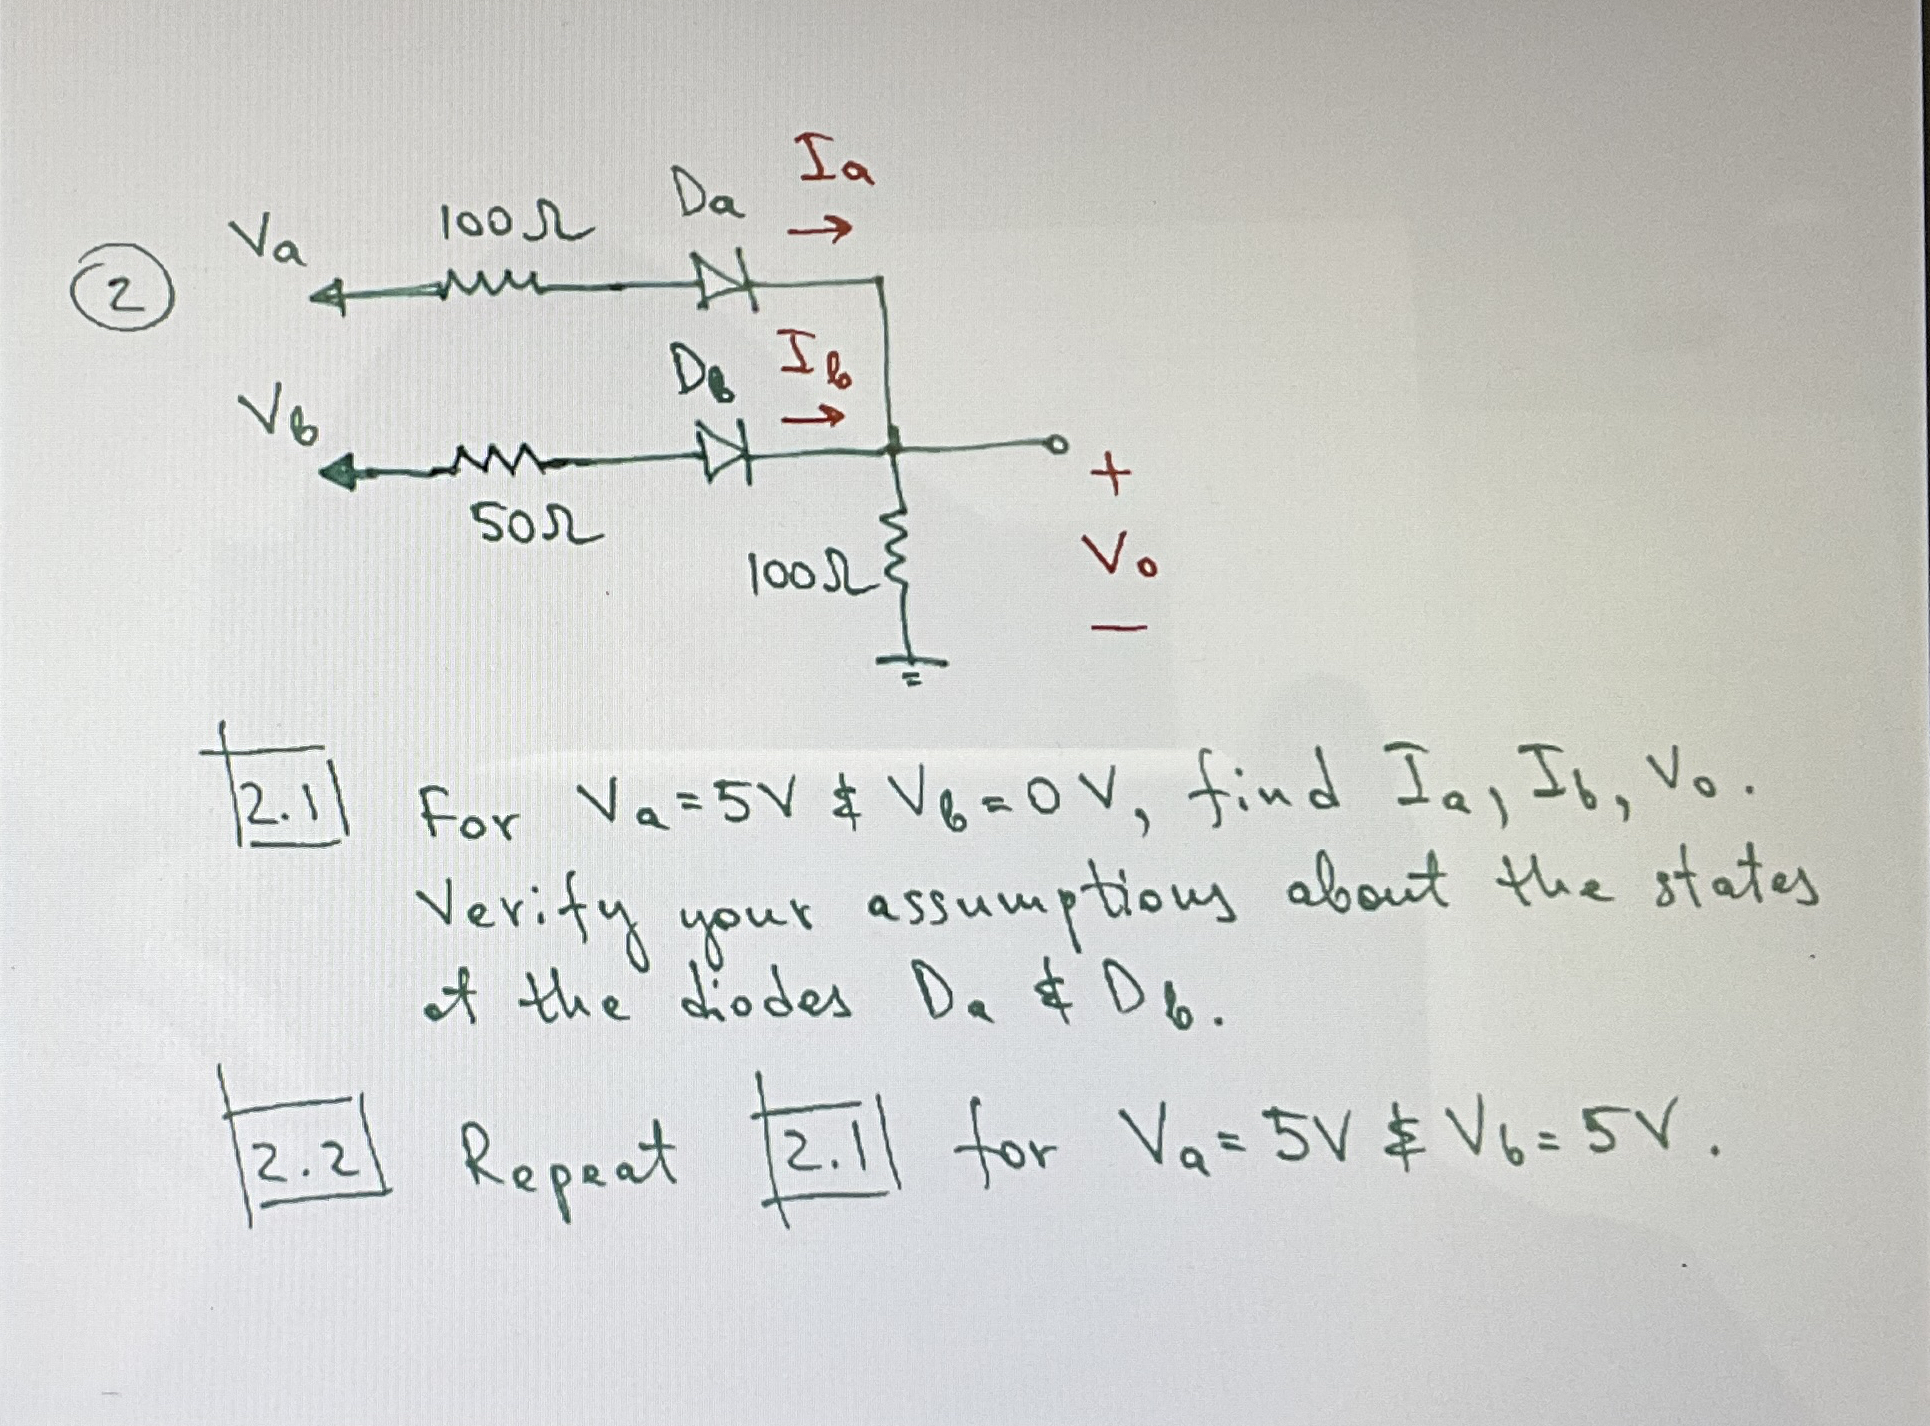 Ia
Da
100Ω
Va
2
Ib
Db
Vb
50Ω
+
Vo
100Ω
−
2.1 For Va = 5V & Vb = 0V, find Ia, Ib, Vo.
Verify your assumptions about the states
of the diodes Da & Db.
2.2 Repeat 2.1 for Va = 5V & Vb = 5V.